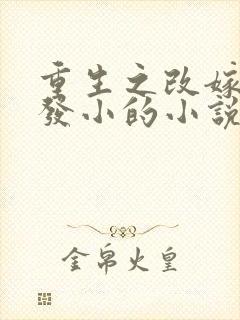 重生之改嫁
發小的小說
金帛火皇